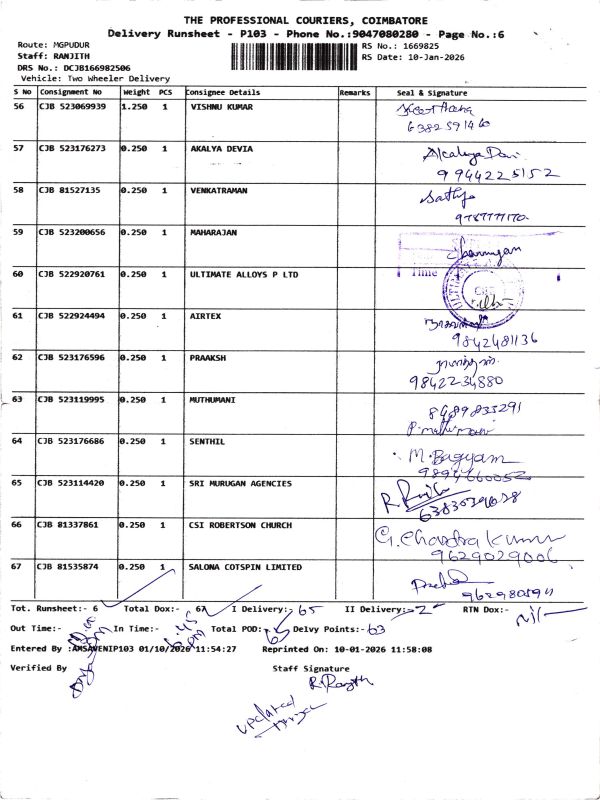 THE PROFESSIONAL COURIERS, COIMBATORE
Delivery Runsheet - P103 - Phone No.:9047080280 - Page No.:6
Route: MGPUDUR
Staff: RANJITH
DRS No.: DCJB166982506
Vehicle: Two Wheeler Delivery
RS No.: 1669825
RS Date: 10-Jan-2026
S No Consignment No Weight PCS Consignee Details Remarks Seal & Signature
56 CJB 523069939 1.250 1 VISHNU KUMAR
57 CJB 523176273 0.250 1 AKALYA DEVIA
9944225152
58 CJB 81527135 0.250 1 VENKATRAMAN
Sathya
59 CJB 523200656 0.250 1 MAHARAJAN
Time
60 CJB 522920761 0.250 1 ULTIMATE ALLOYS P LTD
61 CJB 522924494 0.250 1 AIRTEX
9842481136
62 CJB 523176596 0.250 1 PRAAKSH
9842234880
63 CJB 523119995 0.250 1 MUTHUMANI
8489833291
64 CJB 523176686 0.250 1 SENTHIL
M. Bagyam
65 CJB 523114420 0.250 1 SRI MURUGAN AGENCIES
66 CJB 81337861 0.250 1 CSI ROBERTSON CHURCH
G. Chandrakumar
9629029006
67 CJB 81535874 0.250 1 SALONA COTSPIN LIMITED
Tot. Runsheet:- 6 Total Dox:- 67 I Delivery:- 65 II Delivery:- 2 RTN Dox:- Nil
Out Time:- In Time:- 6:45 PM Total POD:- 65 Delvy Points:- 63
Entered By :AMSAVENIP103 01/10/2026 11:54:27 Reprinted On: 10-01-2026 11:58:08
Verified By Staff Signature
updated